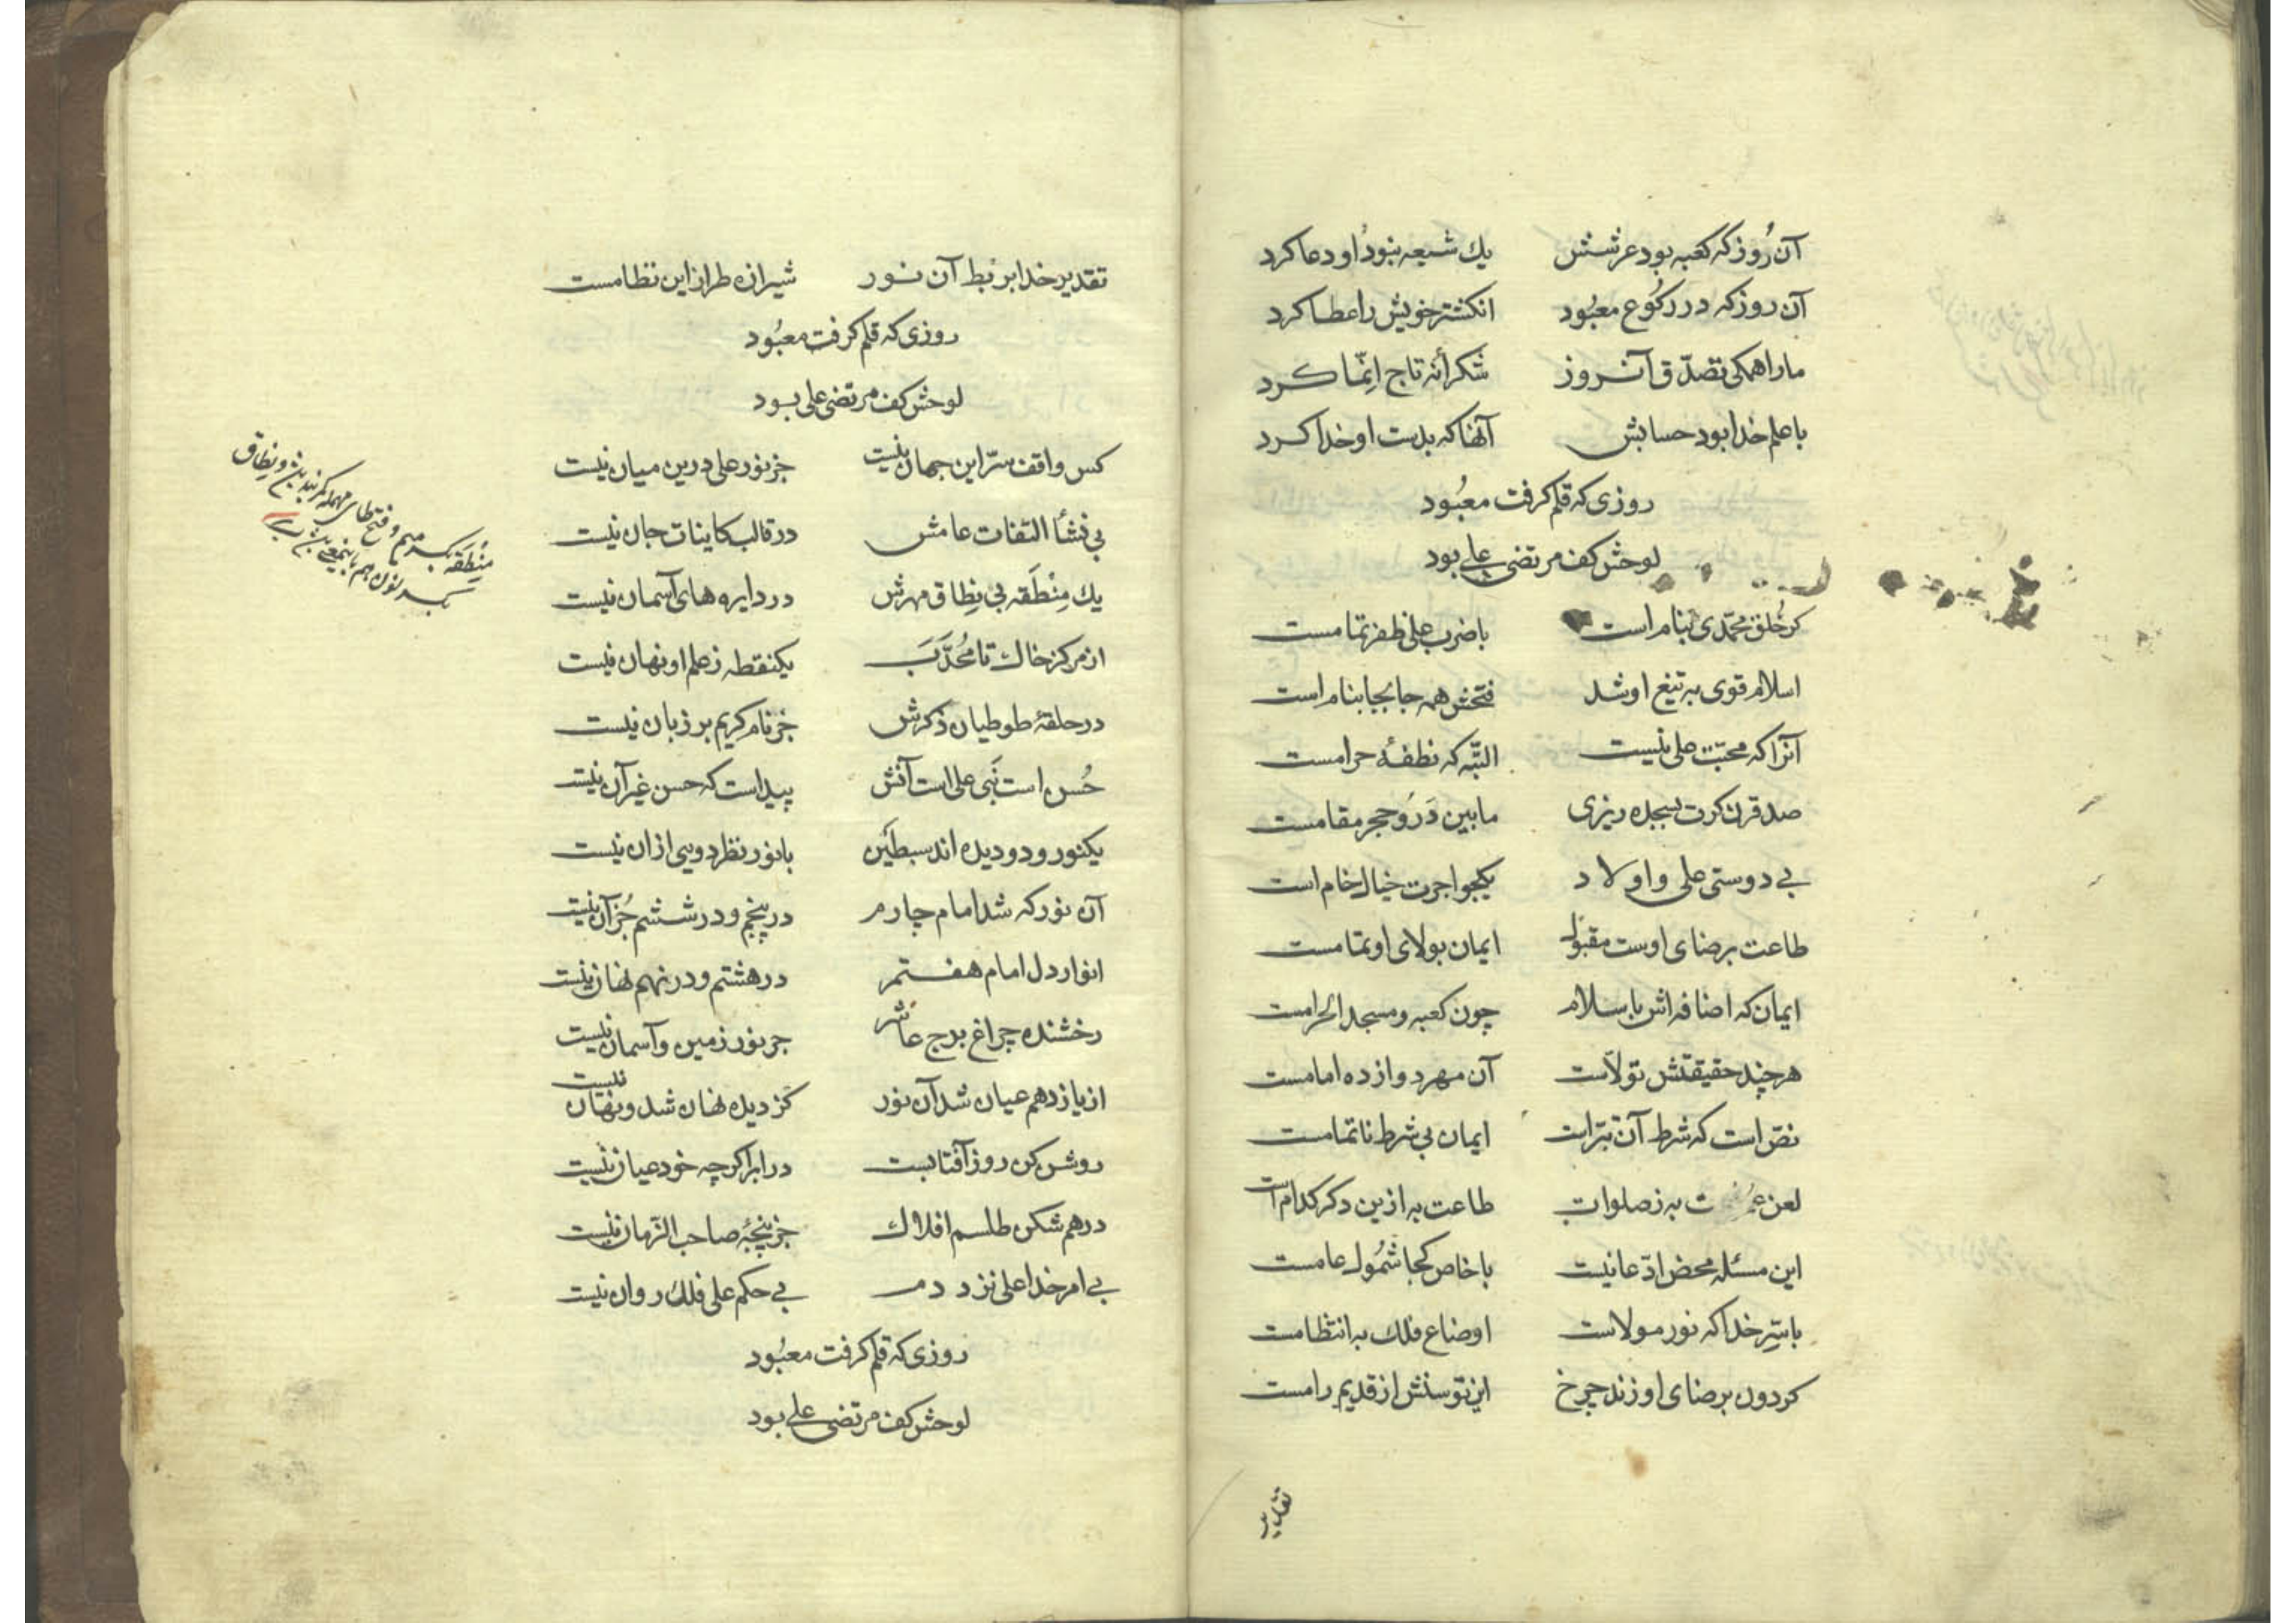 آن رُوز که کعبه بود عرشش یك شیعه بنودُ او دعا کرد
آن روز که در رکُوع معبُود انکشتر خویش را عطا کرد
ما را همکی تصدّق آنروز شکرأنه تاج اِنّما کرد
با علم خدا بود حسابش آنها که بدست او خدا کرد
روزی که قلم کرفت معبُود
لوحش کف مرتضی علی بود
کر خُلق محمّدی بنام است با ضرب علی ظفر تمامست
اسلام قوی به تیغ او شد فتحش همه جا بجا بنام است
آنرا که محبّت علی نیست البتّه که نطفهٔ حرامست
صد قرن کرت بسجده ریزی مابین دَر وُ حجر مقامست
بی دوستی علی و اولاد یکجو اجرت خیال خام است
طاعت برضای اوست مقبول ایمان بولای او تمامست
ایمان که اضافه اش باسلام چون کعبه و مسجد الحرامست
هر چند حقیقتش تولّاست آن مهر دوازده امامست
نصّ است که شرط آن تبرّاست ایمان بی شرط ناتمامست
لعن به ز صلوات طاعت به ازین دکر کدام است
این مسئله محض ادّعا نیست با خاص کجا شمُول عامست
با سّرِ خدا که نور مولاست اوضاع فلك به انتظامست
کردون برضای او زند چرخ این توسنش از قدیم رامست
تقدیر
تقدیر خدا بر بَط آن نور شیرازه طراز این نظامست
روزی که قلم کرفت معبُود
لوحش کف مرتضی علی بود
کس واقف سرّ این جهان نیست جز نور علی درین میان نیست
بی نشأ التفات عامش در قالب کاینات جان نیست
یك مِنْطَقه بی نِطاق مهرش در دایره های آسمان نیست
از مرکز خاك تا مُحدَّب یکنقطه ز علم او نهان نیست
در حلقهٔ طوطیان ذکرش جز نام کریم بر زبان نیست
حُسن است نَبی علی است آنش پیداست که حسن غیر آن نیست
یکنور و دو دیده اند سبطَین با نور نظر دویی ازان نیست
آن نور که شد امام چارم در پنجم و در ششم جُز آن نیست
انوار دل امام هفتم در هشتم و در نهم نهان نیست
رخشنده چراغ برج عاشر جز نور زمین و آسمان نیست
از یازدهم عیان شد آن نور کز دیده نهان شد و نهان نیست
روشن کن روز آفتابست در ابر اکرچه خود عیان نیست
درهم شکن طلسم افلاك جز پنجهٔ صاحب الزّمان نیست
بی امر خدا علی نزد دم بی حکم علی فلك روان نیست
روزی که قلم کرفت معبُود
لوحش کف مرتضی علی بود
مِنْطَقَه بکسر میم و فتح طای مهمله کمربند و نِطاق
بکسر نون هم باینمعنی